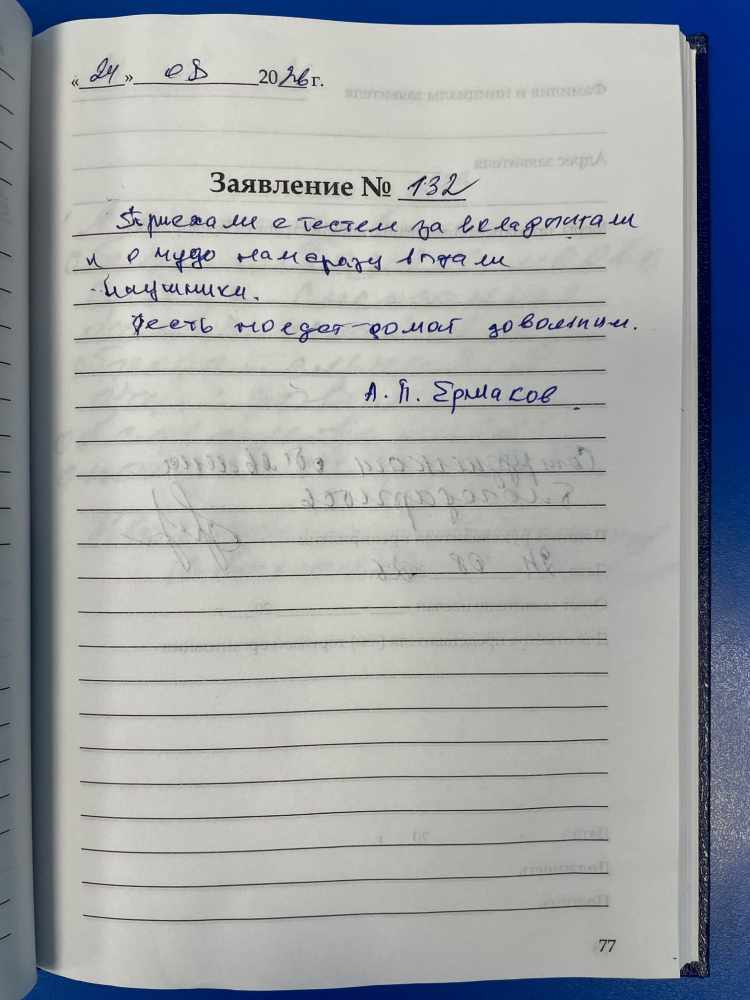 «24» 03 2026 г.
Заявление № 132
Приехали с тестем за вкладышами
и о чудо нам сразу выдали
наушники.
Тесть поедет домой довольным.
А. П. Ермаков
77